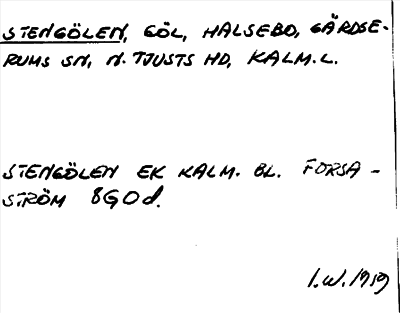 STENGÖLEN, GÖL, HALSEBO, GÄRDSE-
RUMS SN, N. TJUSTS HD, KALM.L.
STENGÖLEN EK KALM. BL. FORSA-
STRÖM 8G0d.
I.W. 1959